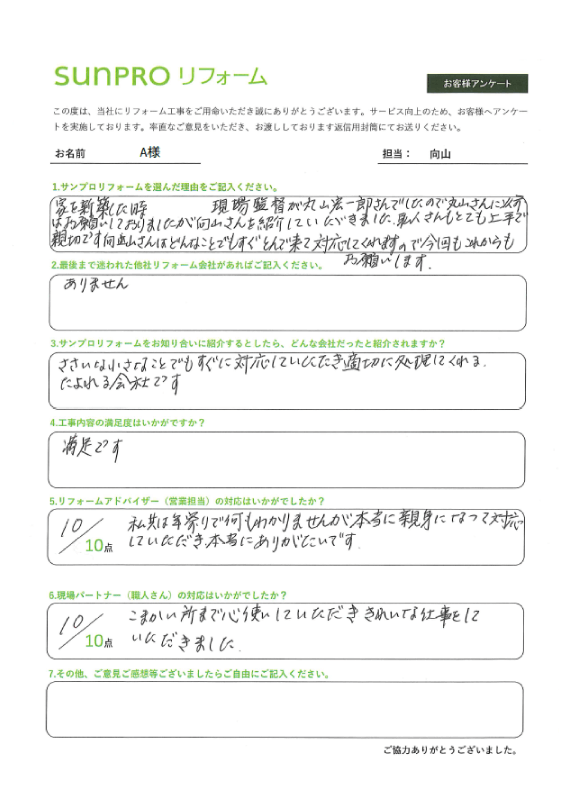 sunPRO リフォーム
お客様アンケート
この度は、当社にリフォーム工事をご用命いただき誠にありがとうございます。サービス向上のため、お客様へアンケー
トを実施しております。率直なご意見をいただき、お渡ししております返信用封筒にてお送りください。
お名前 A様 担当： 向山
1.サンプロリフォームを選んだ理由をご記入ください。
家を新築した時 現場監督が丸山浩一郎さんでしたので丸山さんに以前
はお願いしておりましたが向山さんを紹介していただきました。職人さんもとても上手で
親切です向山さんはどんなことでもすぐとんで来て対応してくれますので今回もこれからも
お願いします.
2.最後まで迷われた他社リフォーム会社があればご記入ください。
ありません
3.サンプロリフォームをお知り合いに紹介するとしたら、どんな会社だったと紹介されますか？
ささいな小さなことでもすぐに対応していただき適切に処理してくれる.
たよれる会社です
4.工事内容の満足度はいかがですか？
満足です
5.リフォームアドバイザー（営業担当）の対応はいかがでしたか？
10／10点
私共は年寄りで何もわかりませんが本当に親身になって対応
していただき本当にありがたいです.
6.現場パートナー（職人さん）の対応はいかがでしたか？
10／10点
こまかい所まで心使いしていただききれいな仕事をして
いただきました.
7.その他、ご意見ご感想等ございましたらご自由にご記入ください。
ご協力ありがとうございました。